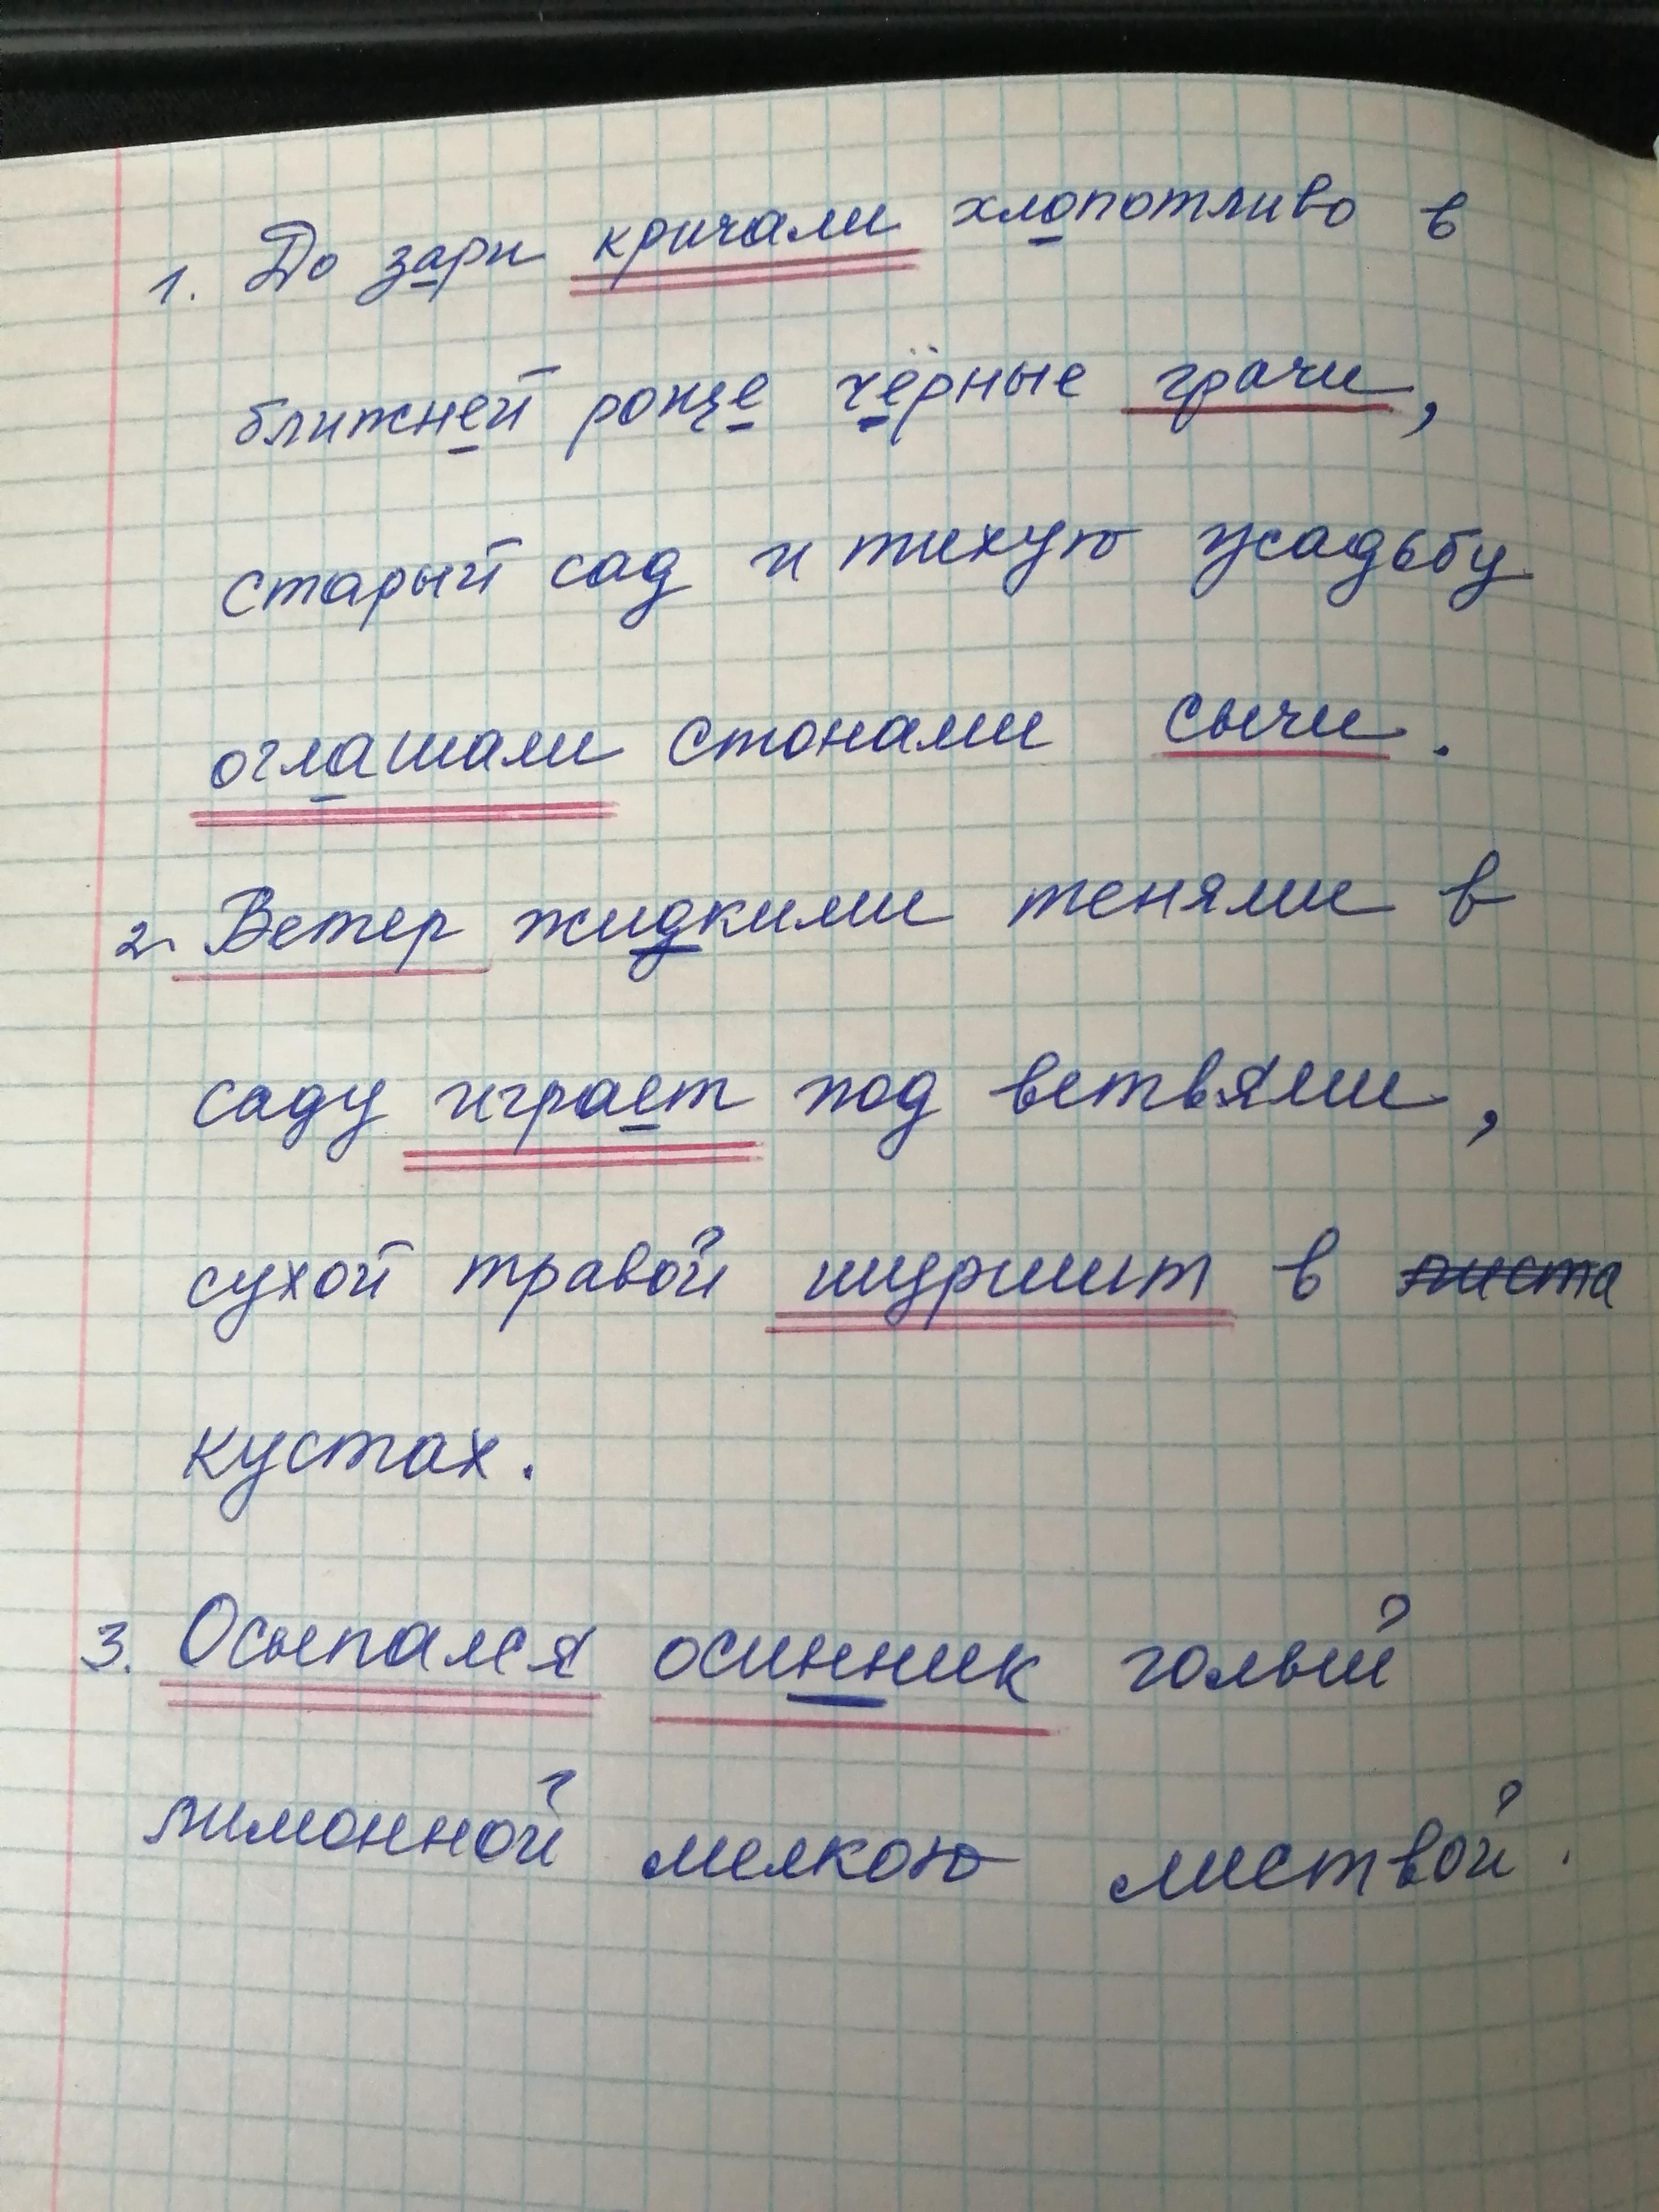 1. До зари кричали хлопотливо в
ближней роще чёрные грачи,
старый сад и тихую усадьбу
оглашали стонами сычи.
2. Ветер жидкими тенями в
саду играет под ветвями,
сухой травой шуршит в листа
кустах.
3. Осыпался осинник голый
лимонной мелкою листвой.